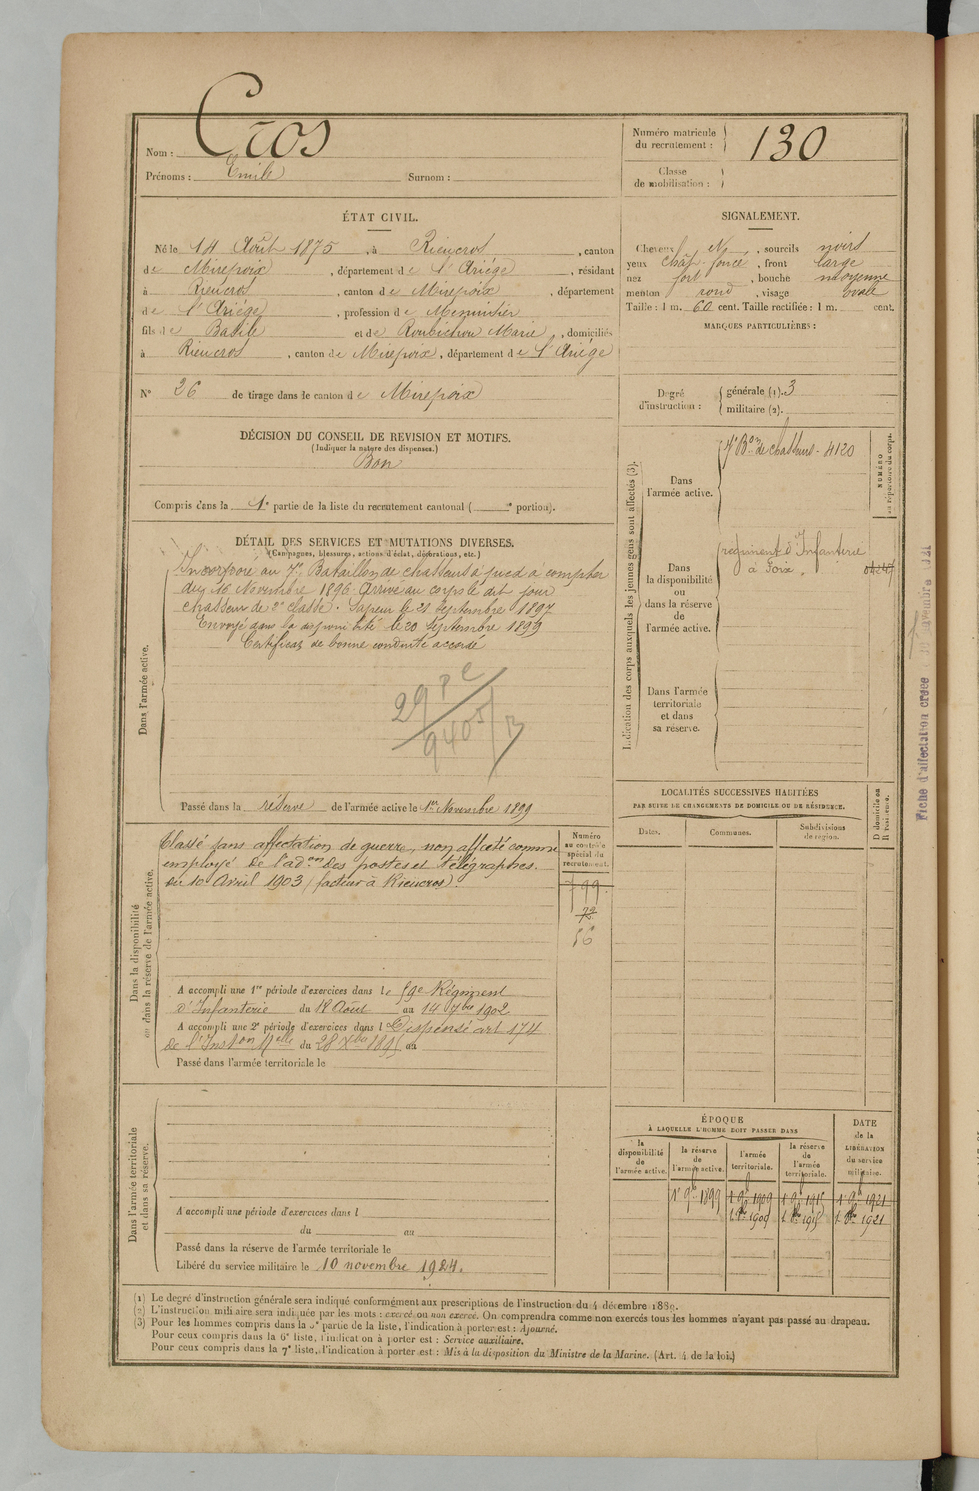 Nom : Cros
Prénoms : Emile Surnom :
Numéro matricule du recrutement : 130
Classe de mobilisation :
ÉTAT CIVIL.
Né le 14 Août 1875, à Rieucros, canton
de Mirepoix, département de l'Ariége, résidant
à Rieucros, canton de Mirepoix, département
de l'Ariége, profession de Menuisier
fils de Basile et de Roubichou Marie, domiciliés
à Rieucros, canton de Mirepoix, département de l'Ariége
N° 26 de tirage dans le canton de Mirepoix
SIGNALEMENT.
Cheveux N, sourcils noirs
yeux chât. foncé, front large
nez fort, bouche moyenne
menton rond, visage ovale
Taille : 1 m. 60 cent. Taille rectifiée : 1 m. cent.
MARQUES PARTICULIÈRES :
Degré d'instruction : générale (1). 3
militaire (2).
DÉCISION DU CONSEIL DE REVISION ET MOTIFS.
(Indiquer la nature des dispenses.)
Bon
Compris dans la 1e partie de la liste du recrutement cantonal ( e portion).
DÉTAIL DES SERVICES ET MUTATIONS DIVERSES.
(Campagnes, blessures, actions d'éclat, décorations, etc.)
Dans l'armée active.
Incorporé au 7e Bataillon de chasseurs à pied à compter
du 16 Novembre 1896. Arrivé au corps le dit jour
chasseur de 2e classe. Sapeur le 21 Septembre 1897
Envoyé dans la disponibilité le 20 Septembre 1899
Certificat de bonne conduite accordé
Passé dans la réserve de l'armée active le 1er Novembre 1899
Indication des corps auxquels les jeunes gens sont affectés (3).
NUMÉRO au répertoire du corps.
Dans l'armée active.
7e Bon de chasseurs - 4120
Dans la disponibilité ou dans la réserve de l'armée active.
régiment d'Infanterie
à Foix.
Dans l'armée territoriale et dans sa réserve.
Fiche d'affectation créée
LOCALITÉS SUCCESSIVES HABITÉES
PAR SUITE DE CHANGEMENTS DE DOMICILE OU DE RÉSIDENCE.
Dates. Communes. Subdivisions de région. D domicile ou R résidence.
Dans la disponibilité ou dans la réserve de l'armée active.
Numéro au contrôle spécial du recrutement.
Classé sans affectation de guerre, non affecté comme
employé de l'adon des postes et télégraphes.
du 10 Avril 1903 (facteur à Rieucros).
799
A accompli une 1re période d'exercices dans le 59e Régiment
d'Infanterie du 18 Août au 14 7bre 1902
A accompli une 2e période d'exercices dans l Dispensé art 174
de l'Inston Melle du 28 Xbre 1895 au
Passé dans l'armée territoriale le
Dans l'armée territoriale et dans sa réserve.
A accompli une période d'exercices dans l
du au
Passé dans la réserve de l'armée territoriale le
Libéré du service militaire le 10 novembre 1924.
ÉPOQUE
À LAQUELLE L'HOMME DOIT PASSER DANS
DATE de la LIBÉRATION du service militaire.
la disponibilité de l'armée active. la réserve de l'armée active. l'armée territoriale. la réserve de l'armée territoriale.
1er 9bre 1899 1 9bre 1909 1 9bre 1915 1er 9bre 1921
1909 1915 1921
(1) Le degré d'instruction générale sera indiqué conformément aux prescriptions de l'instruction du 4 décembre 1889.
(2) L'instruction militaire sera indiquée par les mots : exercé ou non exercé. On comprendra comme non exercés tous les hommes n'ayant pas passé au drapeau.
(3) Pour les hommes compris dans la 5e partie de la liste, l'indication à porter est : Ajourné.
Pour ceux compris dans la 6e liste, l'indication à porter est : Service auxiliaire.
Pour ceux compris dans la 7e liste, l'indication à porter est : Mis à la disposition du Ministre de la Marine. (Art. 4 de la loi.)